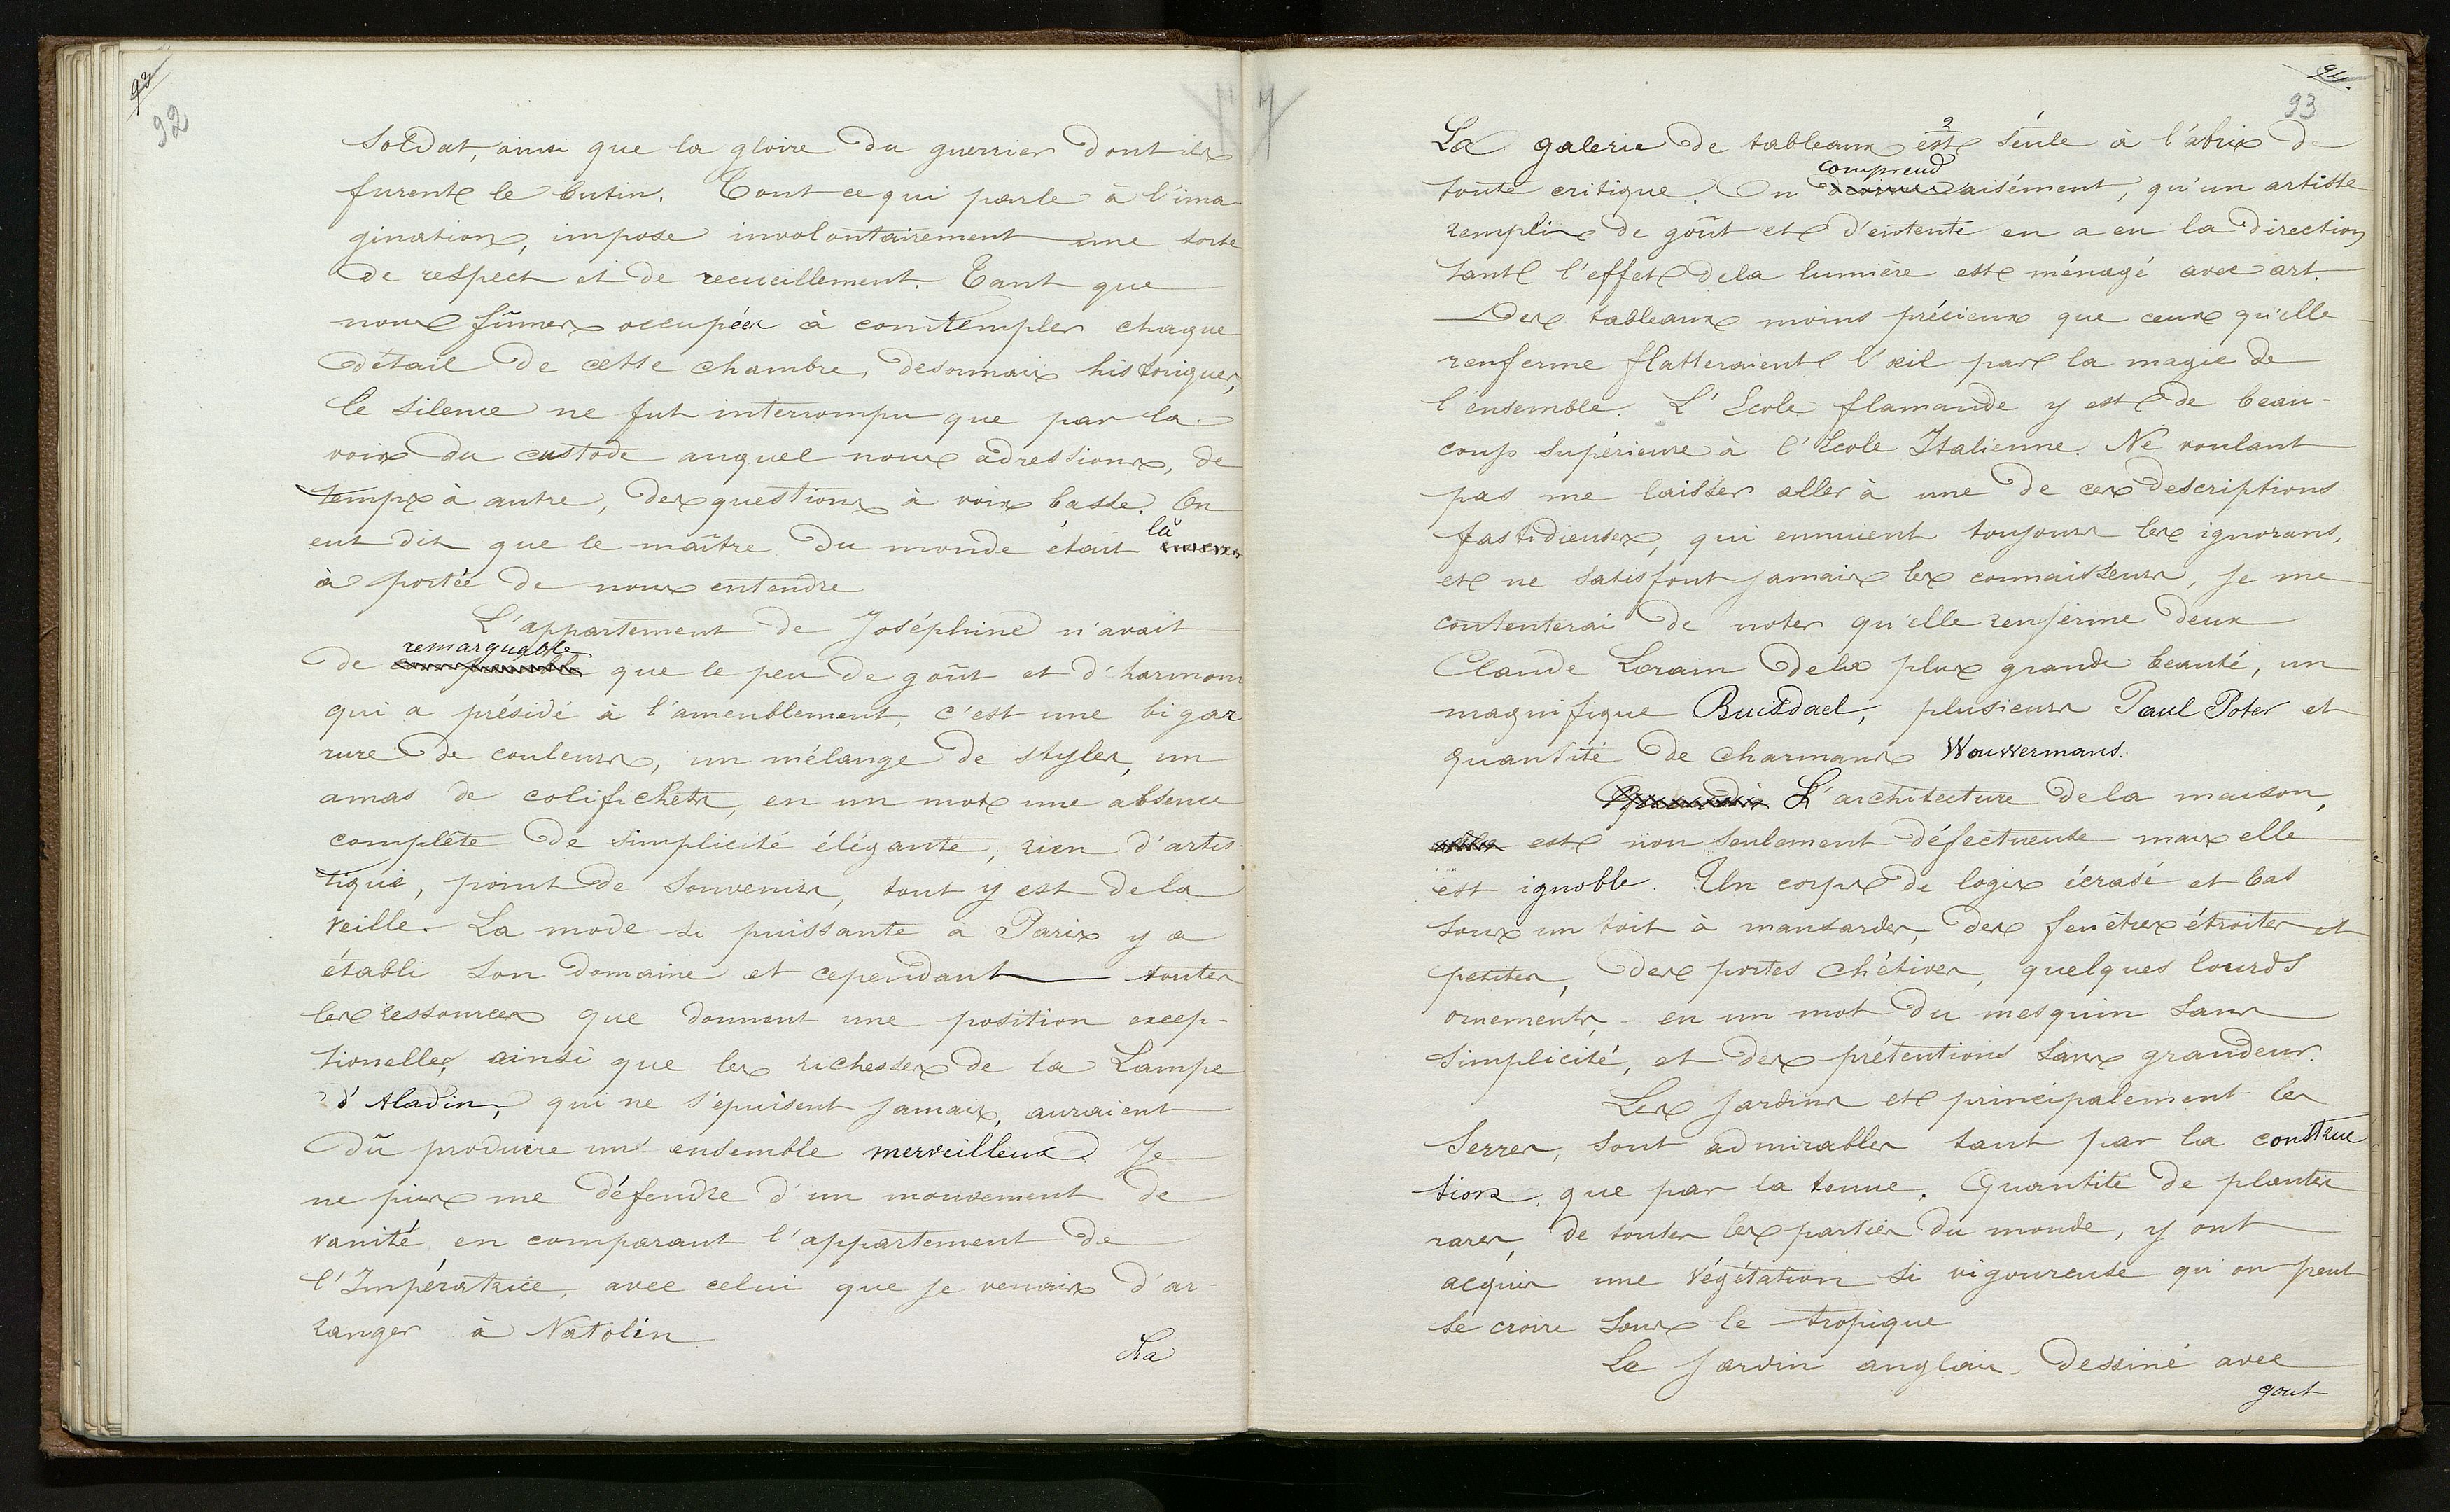 93
92
Soldat, ainsi que la gloire du guerrier dont ils
furent le butin. Tout ce qui parle à l'ima
gination, impose involontairement une sorte
de respect et de recueillement. Tant que
nous fûmes occupées à comtempler chaque
détail de cette chambre, desormais historique,
le silence ne fut interrompu que par la
voix du custode auquel nous adressions, de
temps à autre, des questions à voix basse. On
eut dit que le maître du monde était là
à portée de nous entendre
L'appartement de Joséphine n'avait
remarquable
de que le peu de goût et d'harmoni
qui a présidé à l'ameublement, c'est une bigar
rure de couleurs, un mélange de styles, un
amas de colifichets, en un mot une absence
complête de simplicité élégante; rien d'artis-
tique, point de souvenirs, tout y est de la
veille. La mode si puissante à Paris y a
établi son domaine et cependant toutes
les ressources que donnent une position excep-
tionelle, ainsi que les richesses de la Lampe
d'Aladin, qui ne s'épuisent jamais, auraient
dû produire un ensemble merveilleux. Je
ne puis me défendre d'un mouvement de
vanité en comparant l'appartement de
l'Impératrice, avec celui que je venais d'ar-
ranger à Natolin
La
93
La galerie de tableaux est seule à l'abri de
comprend
toute critique. On aisément, qu'un artiste
rempli de goût et d'entente en a eu la direction
tant l'effet de la lumière est ménagé avec art.
Des tableaux moins précieux que ceux qu'elle
renferme flatteraient l'œil par la magie de
l'ensemble. L'Ecole flamande y est de beau-
coup supérieure à l'Ecole Italienne. Ne voulant
pas me laisser aller à une de ces descriptions
fastidieuses, qui ennuient toujours les ignorans,
et ne satisfont jamais les connaisseurs, je me
contenterai de noter qu'elle renferme deux
Claude Lorain de la plus grande beauté, un
magnifique Ruisdael, plusieurs Paul Poter et
quantité de charmans Wouwermans.
L'architecture de la maison,
est non seulement défectueuse mais elle
est ignoble. Un corps de logis écrasé et bas
sous un toit à mansardes, des fenêtres étroites et
petites, des portes chétives, quelques lourds
ornements, en un mot du mesquin sans
simplicité, et des prétentions sans grandeur.
Les jardins et principalement les
serres, sont admirables tant par la construc
tion, que par la tenue. Quantité de plantes
rares, de toutes les parties du monde, y ont
acquis une végétation si vigoureuse qu'on peut
se croire sous le tropique
Le jardin anglais, dessiné avec
gout